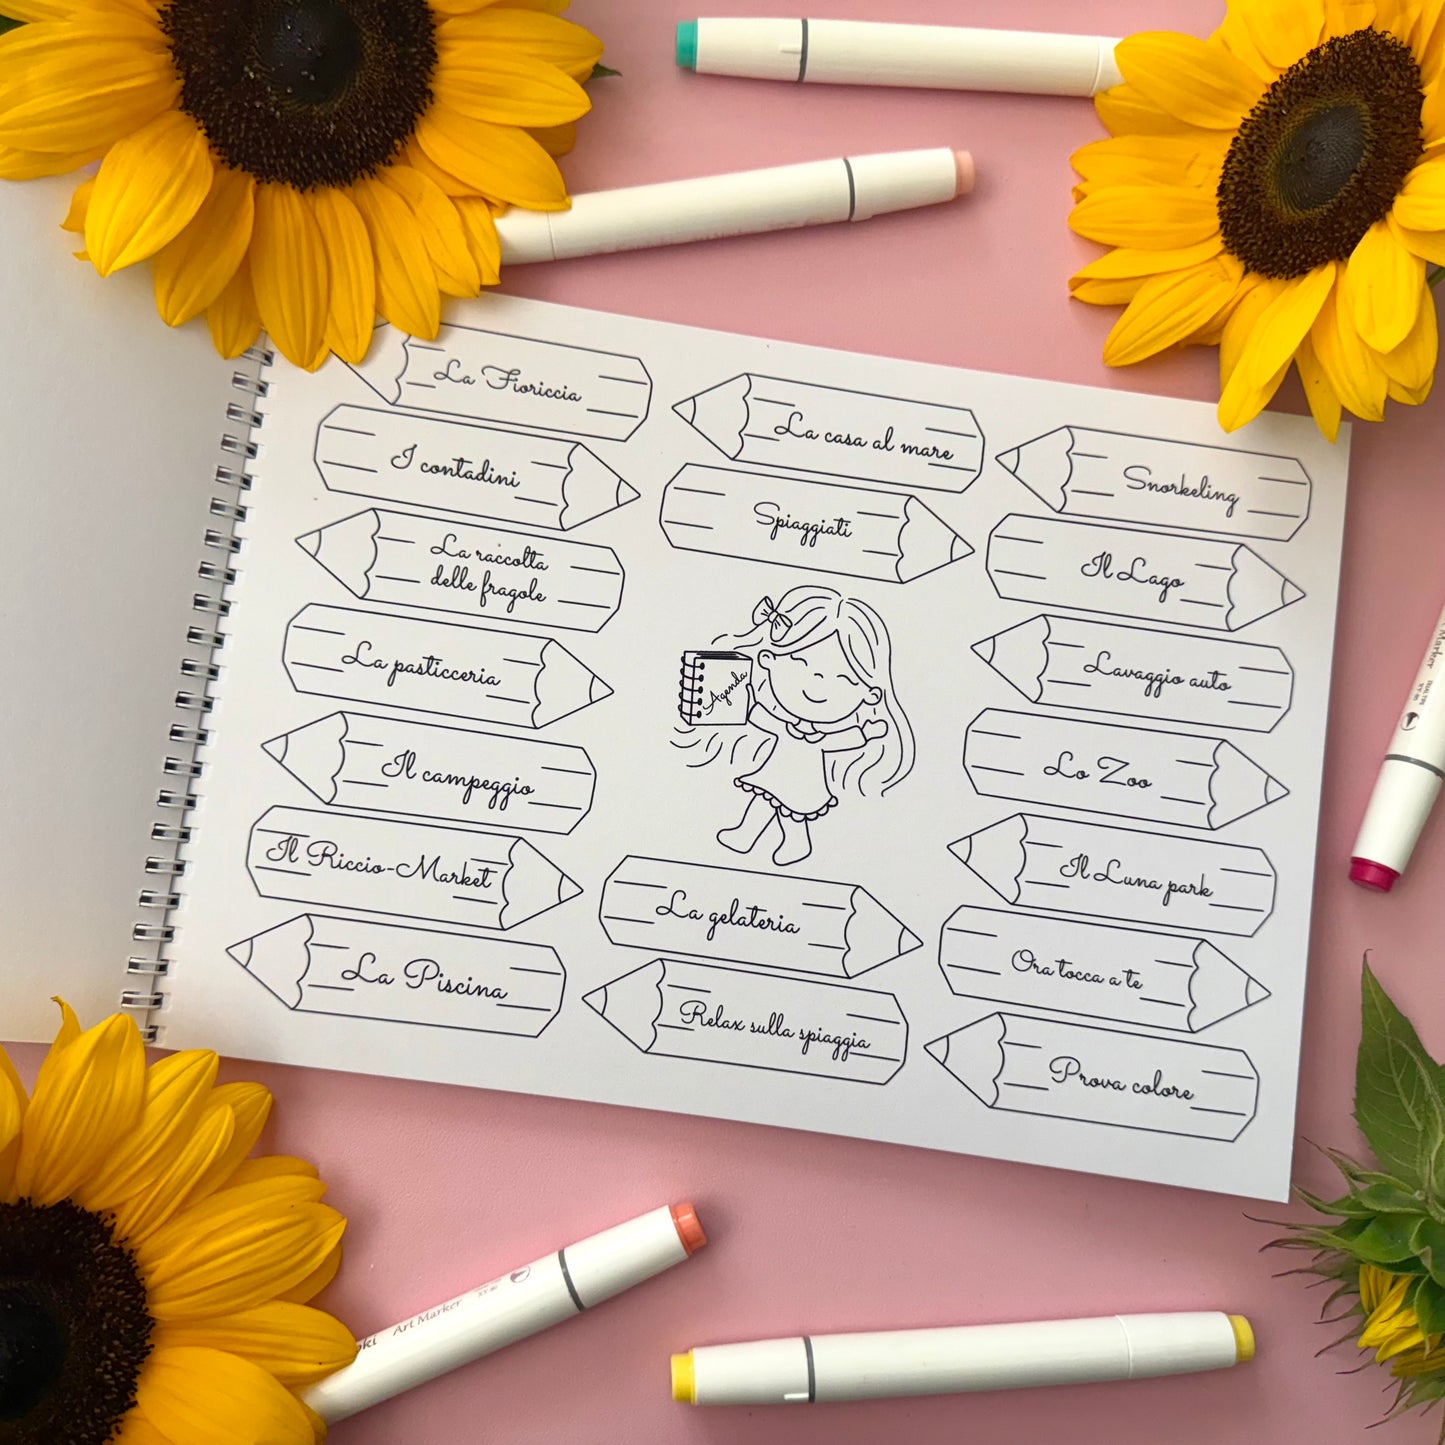 La Fioriccia
I contadini
La raccolta
delle fragole
La pasticceria
Il campeggio
Il Riccio-Market
La Piscina
La casa al mare
Spiaggiati
Agenda
La gelateria
Relax sulla spiaggia
Snorkeling
Il Lago
Lavaggio auto
Lo Zoo
Il Luna park
Ora tocca a te
Prova colore
Art Marker
Marker